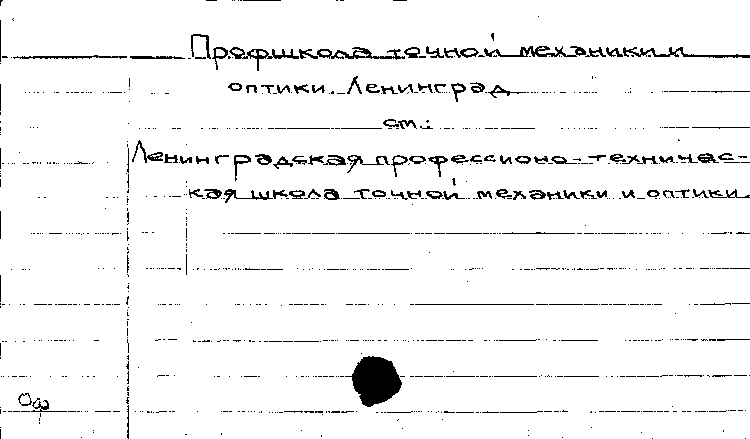 Профшкола точной механики и
оптики. Ленинград
см.:
Ленинградская профессионо-техничес-
кая школа точной механики и оптики
Оф